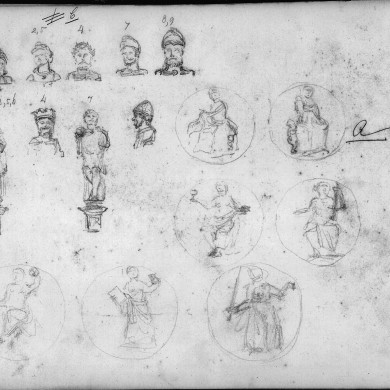 2,5 4 7 8,9
,5,6 4 7
a